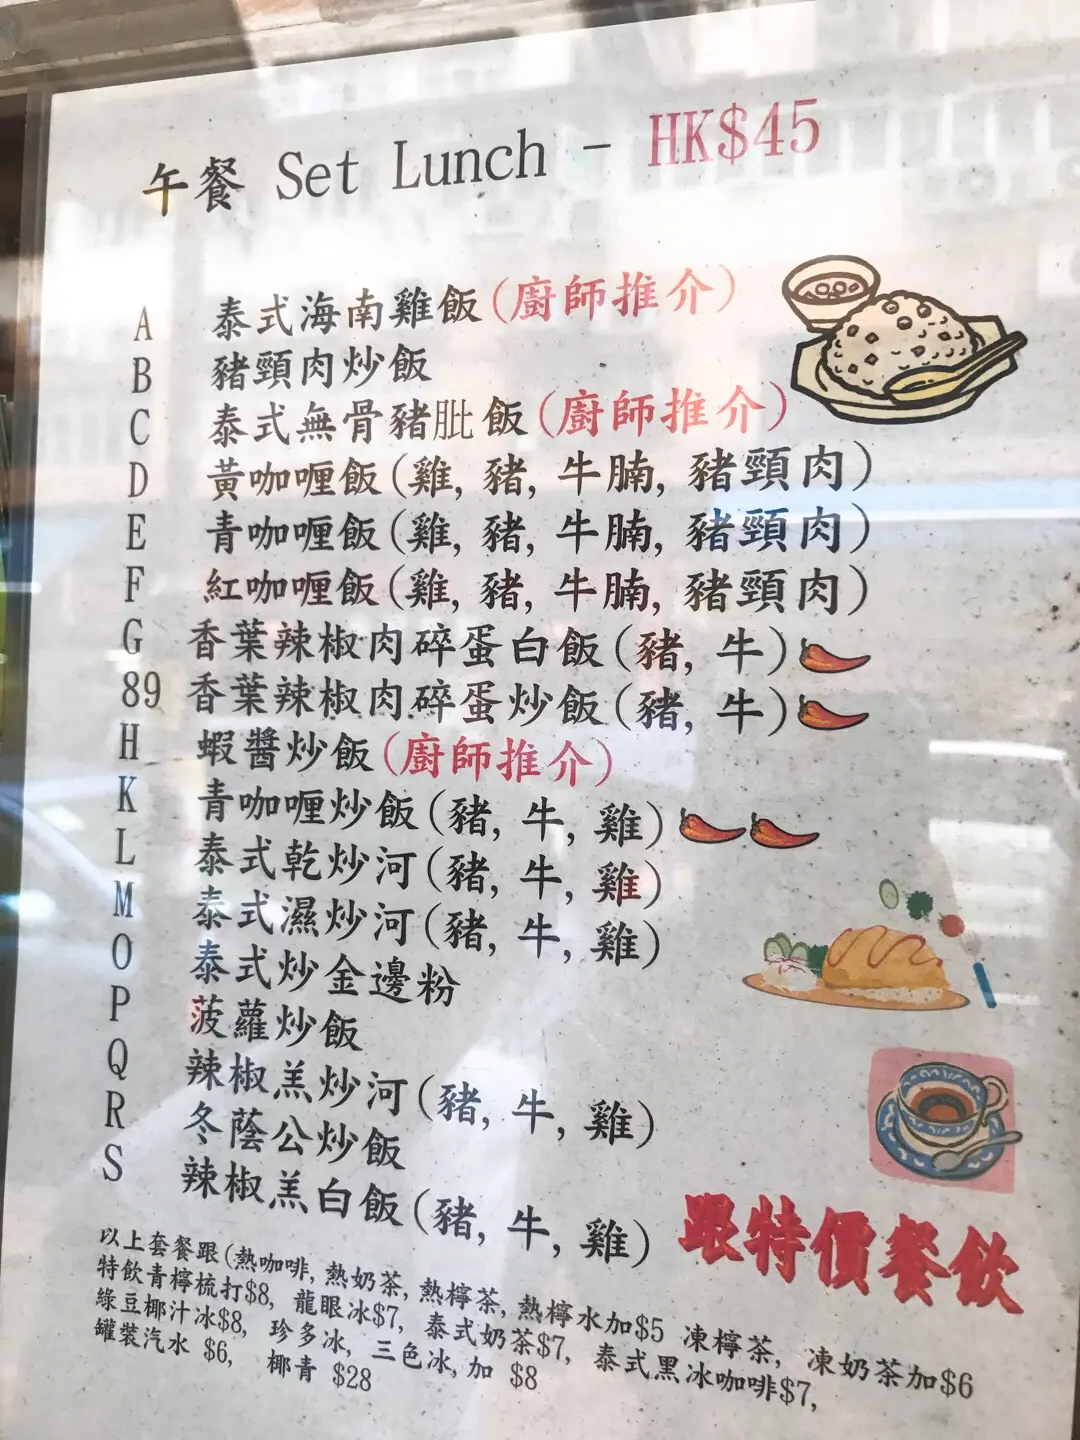 午餐 Set Lunch - HK$45
A 泰式海南雞飯(廚師推介)
B 豬頸肉炒飯
C 泰式無骨豬肶飯(廚師推介)
D 黃咖喱飯(雞, 豬, 牛腩, 豬頸肉)
E 青咖喱飯(雞, 豬, 牛腩, 豬頸肉)
F 紅咖喱飯(雞, 豬, 牛腩, 豬頸肉)
G 香葉辣椒肉碎蛋白飯(豬, 牛)
89 香葉辣椒肉碎蛋炒飯(豬, 牛)
H 蝦醬炒飯(廚師推介)
K 青咖喱炒飯(豬, 牛, 雞)
L 泰式乾炒河(豬, 牛, 雞)
M 泰式濕炒河(豬, 牛, 雞)
O 泰式炒金邊粉
P 菠蘿炒飯
Q 辣椒羔炒河(豬, 牛, 雞)
R 冬蔭公炒飯
S 辣椒羔白飯(豬, 牛, 雞)
跟特價餐飲
以上套餐跟(熱咖啡, 熱奶茶, 熱檸茶, 熱檸水加$5 凍檸茶, 凍奶茶加$6
特飲青檸梳打$8, 龍眼冰$7, 泰式奶茶$7, 泰式黑冰咖啡$7,
綠豆椰汁冰$8, 珍多冰, 三色冰,加 $8
罐裝汽水 $6, 椰青 $28